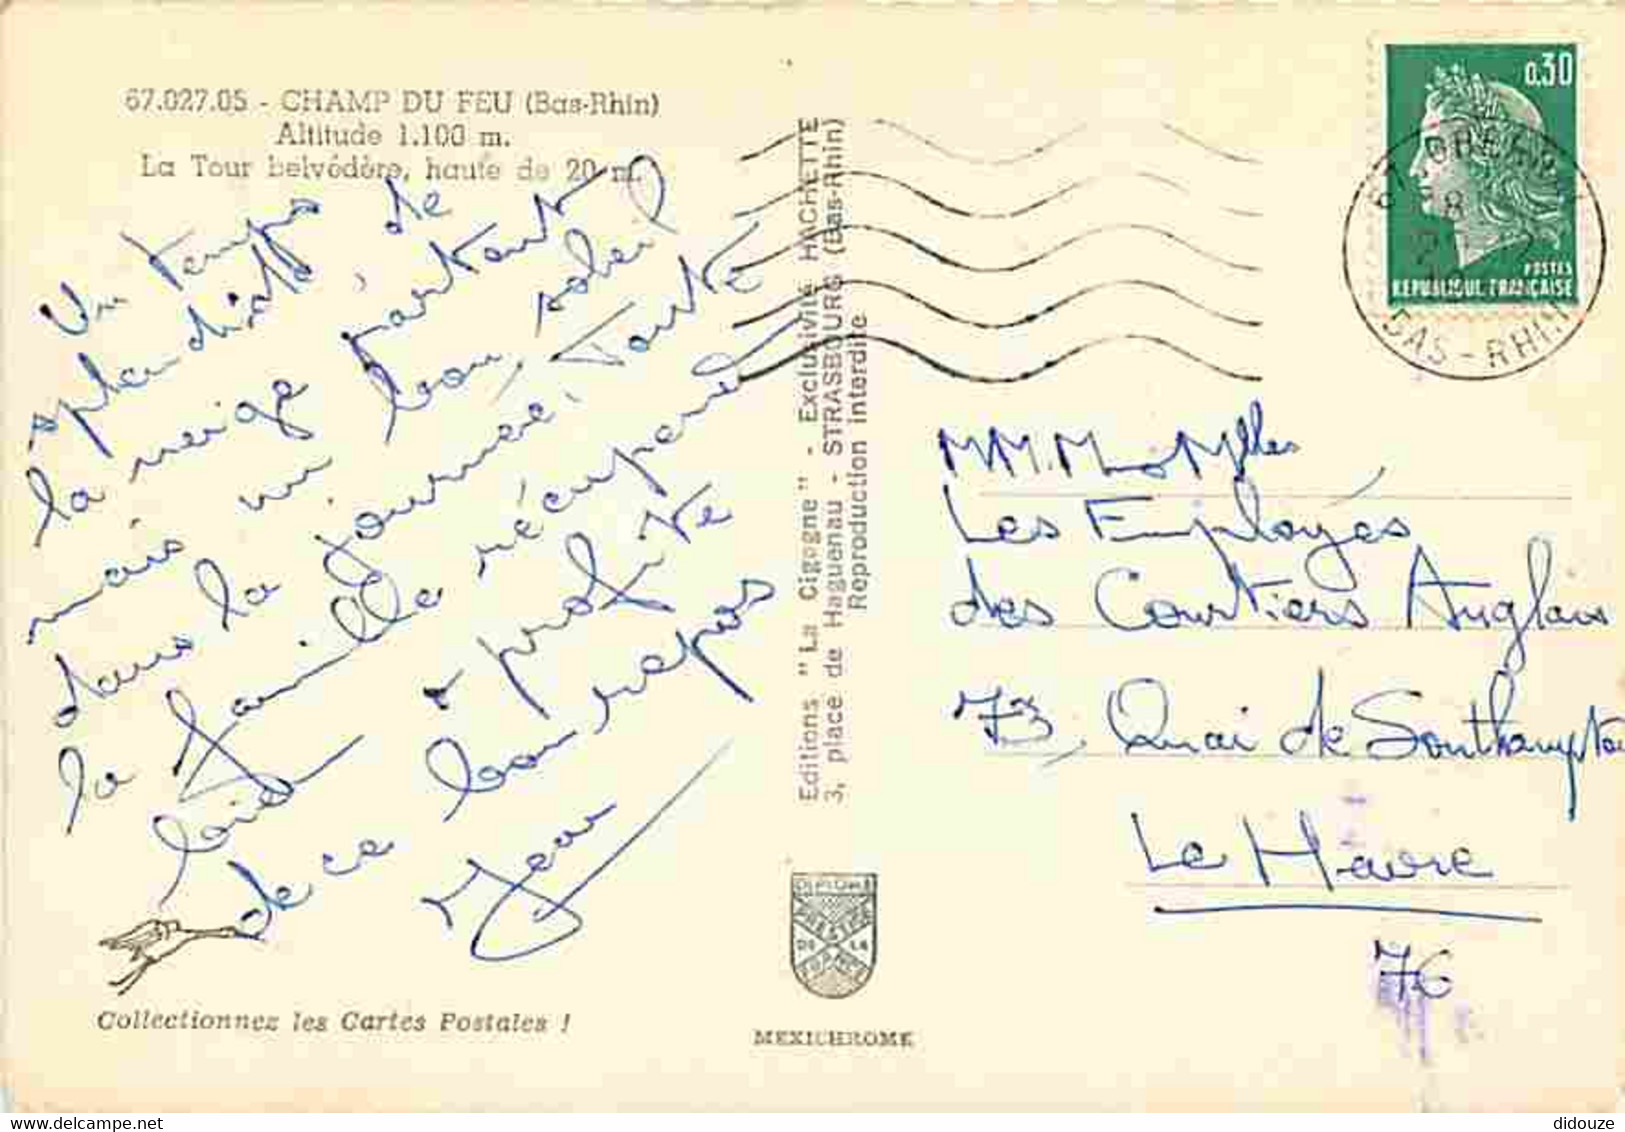 67.027.05 - CHAMP DU FEU (Bas-Rhin)
Altitude 1.100 m.
La Tour belvédère, haute de 20 m.
Un temps
splendide, de
la neige partout
mais un bon soleil
dans la journée. Toute
la famille récupère
loin & profite
de ce bon repos
Jean
Collectionnez les Cartes Postales !
Editions "La Cigogne" - Exclusivité HACHETTE
3, place de Haguenau - STRASBOURG (Bas-Rhin)
Reproduction interdite
DE LA
MEXICHROME
0,30
POSTES
REPUBLIQUE FRANÇAISE
BAS-RHIN
MM. Mlles
Les Employés
des Courtiers Anglais
73, Quai de Southampton
Le Havre
76
didouze